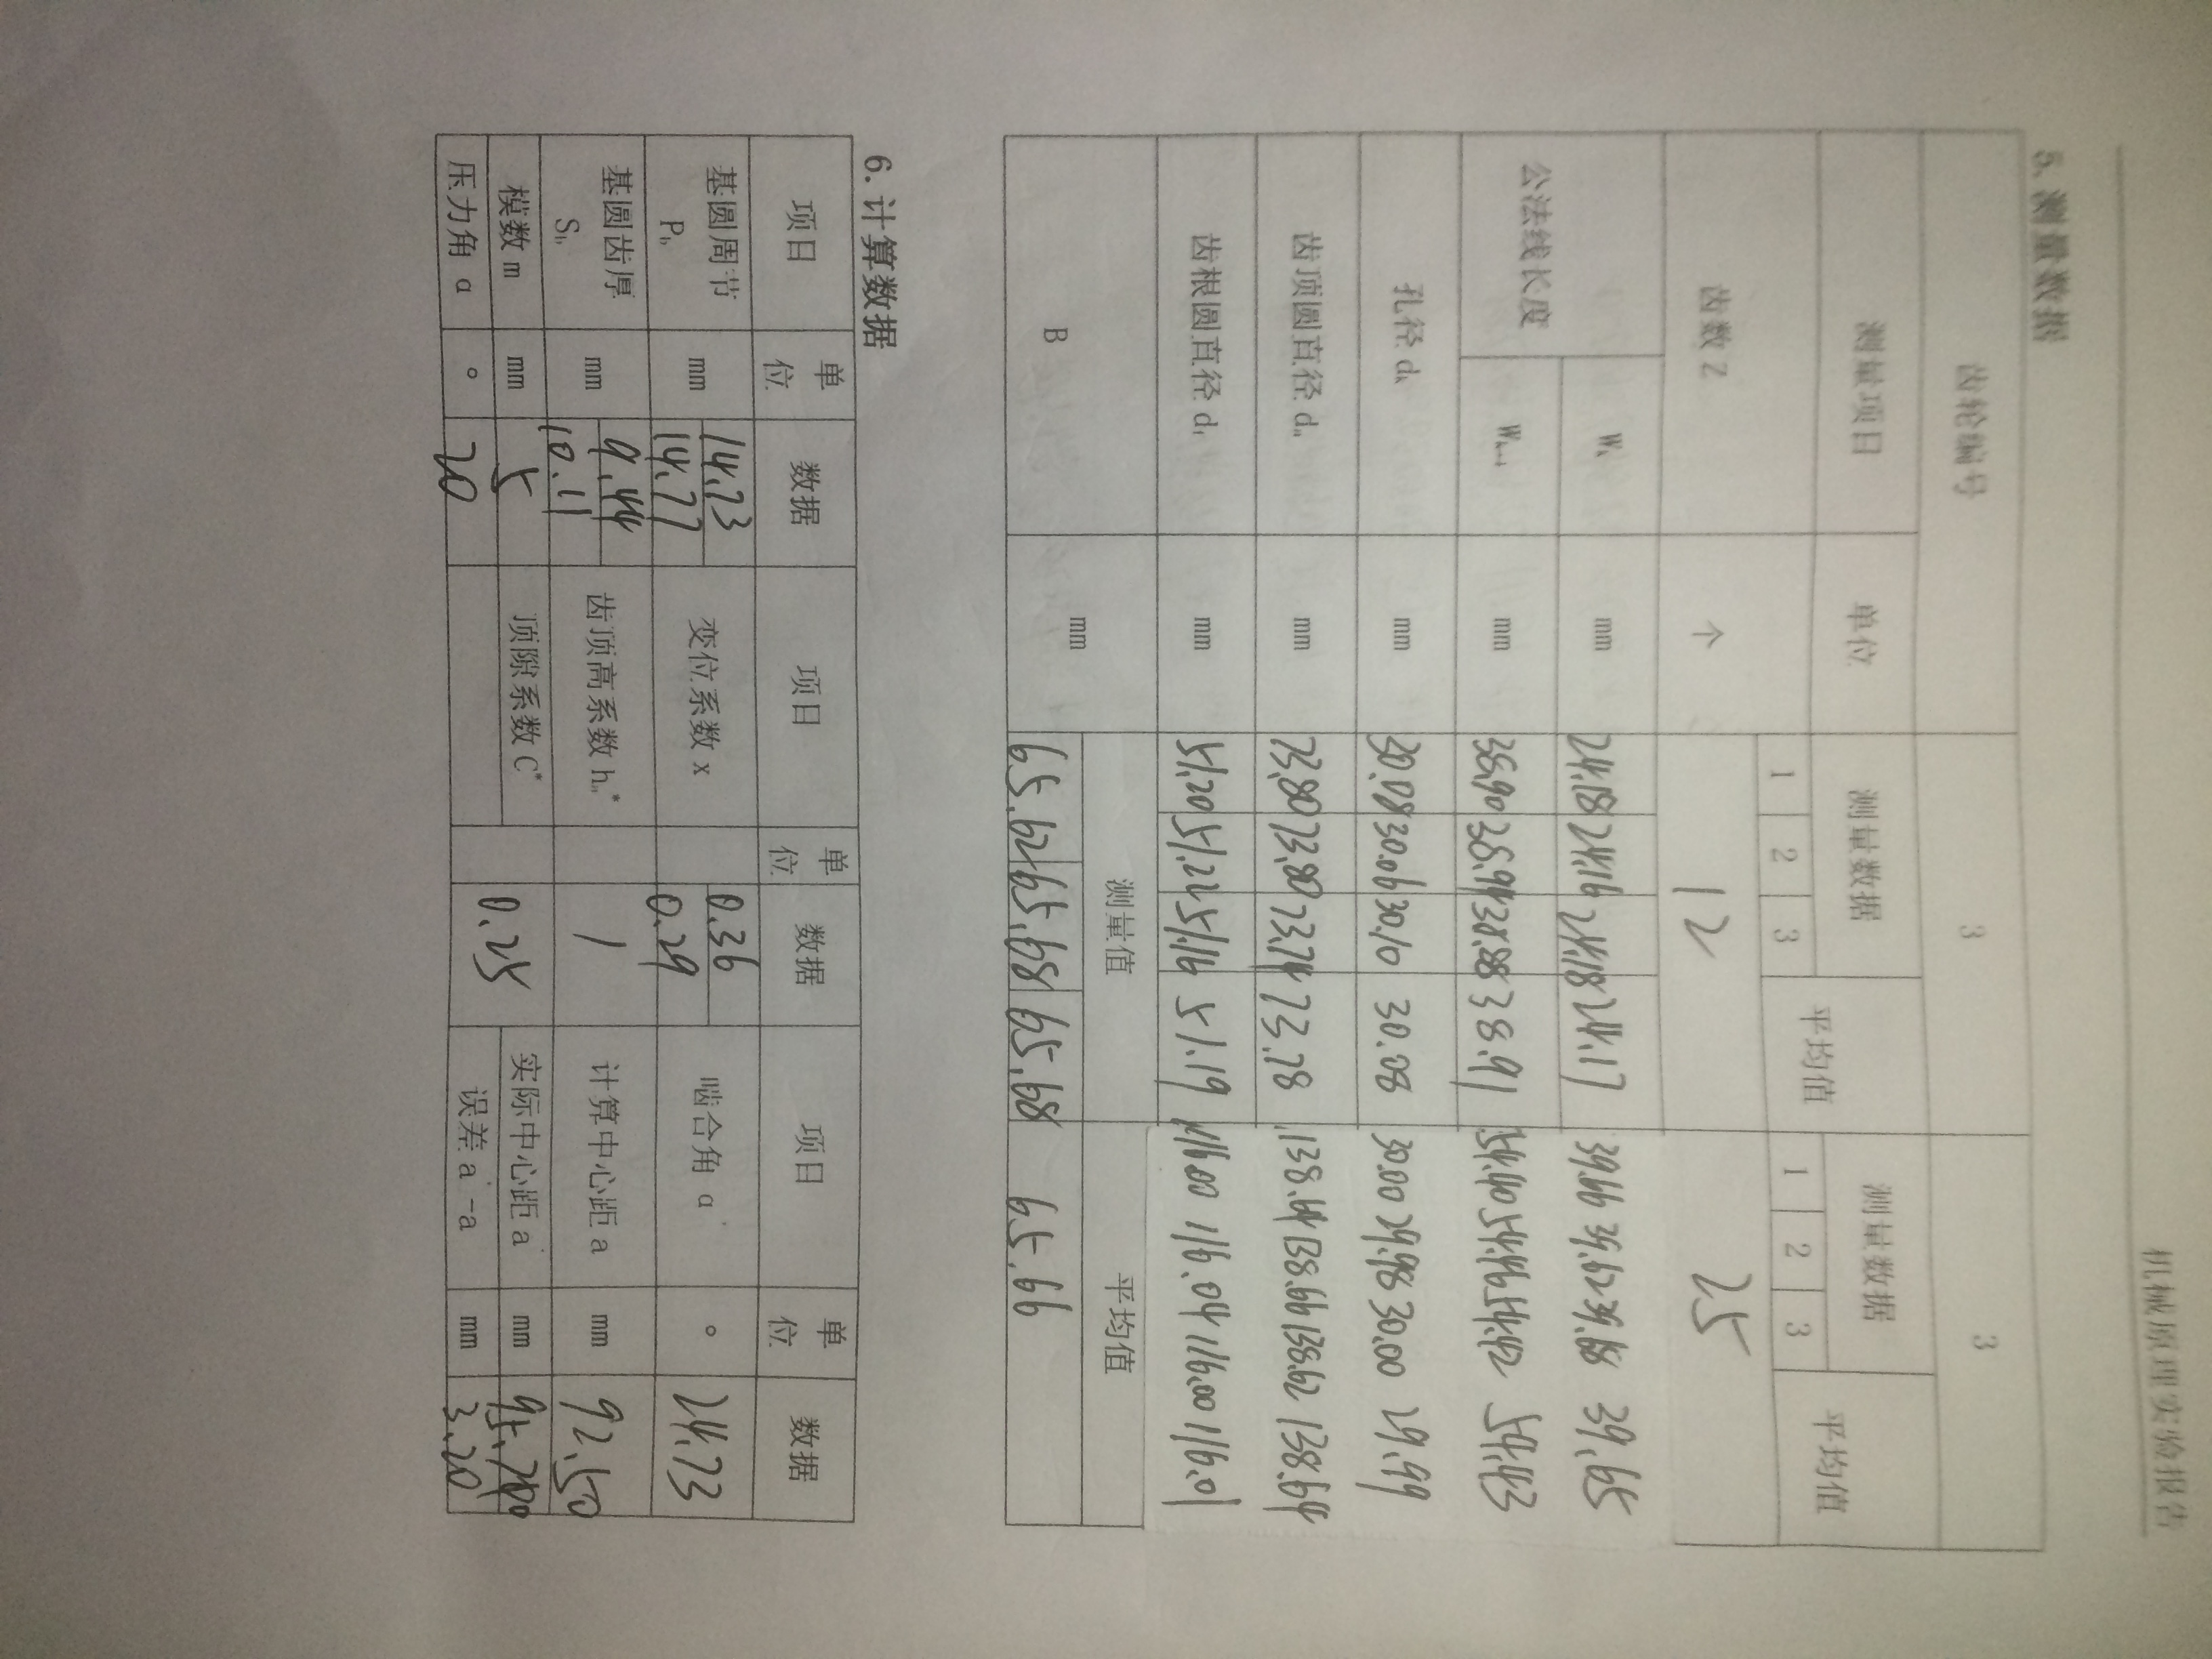 机械原理实验报告
5. 测量数据
齿轮编号 3 3
测量项目 单位 测量数据 平均值 测量数据 平均值
1 2 3 1 2 3
齿数 Z 个 12 25
公法线长度 Wk mm 24.18 24.16 24.18 24.17 39.66 39.62 39.68 39.65
Wk+1 mm 38.90 38.94 38.88 38.91 54.40 54.46 54.42 54.43
孔径 dk mm 30.08 30.06 30.10 30.08 30.00 29.98 30.00 29.99
齿顶圆直径 da mm 73.80 73.80 73.74 73.78 138.64 138.66 138.62 138.64
齿根圆直径 df mm 51.20 51.22 51.16 51.19 116.00 116.04 116.00 116.01
测量值 平均值
B mm 65.62 65.68 65.68 65.66
6. 计算数据
项目 单位 数据 项目 单位 数据 项目 单位 数据
基圆周节 Pb mm 14.73 14.77 变位系数 x 0.36 0.29 啮合角 α' ° 24.23
基圆齿厚 Sb mm 9.44 10.11 齿顶高系数 ha* 1 计算中心距 a mm 92.50
模数 m mm 5 顶隙系数 C* 0.25 实际中心距 a' mm 95.70
压力角 α ° 20 误差 a'-a mm 3.20